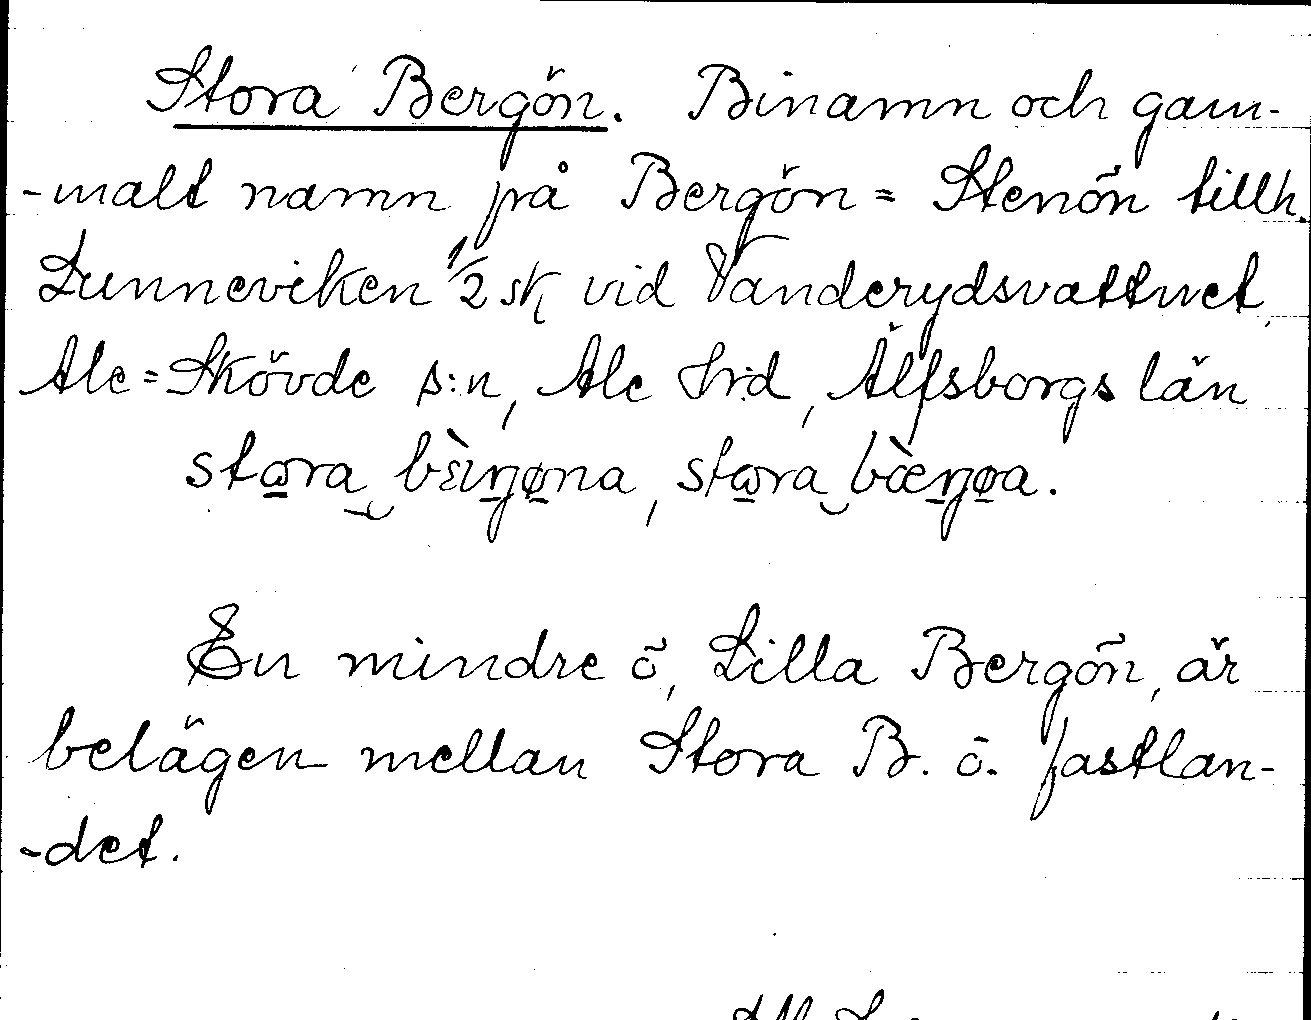 Stora Bergön. Binamn och gam-
-malt namn på Bergön = Stenön tillh.
Lunneviken 1/2 sk vid Vanderydsvattnet,
Ale=Skövde s:n, Ale hrd, Älfsborgs län
stɷra bèŋøna, stɷra bæ̀ŋøa.
En mindre ö, Lilla Bergön, är
belägen mellan Stora B. o. fastlan-
-det.